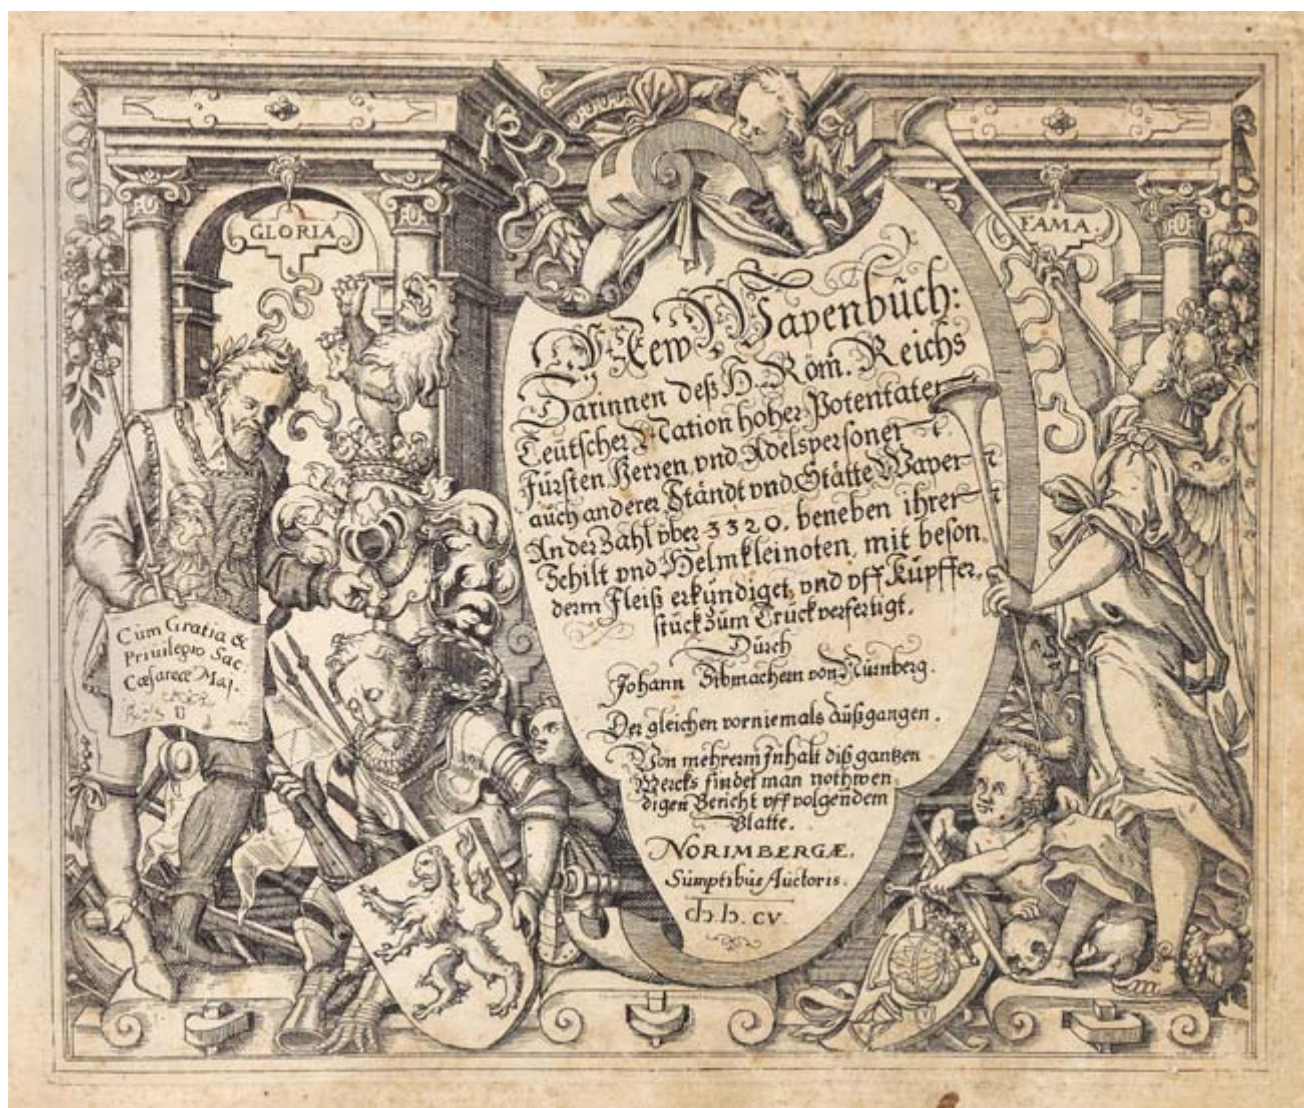 GLORIA
FAMA.
New Wapenbüch:
Darinnen deß H. Röm. Reichs
Teutscher Nation hoher Potentaten
Fürsten Herren vnd Adelspersonen
auch anderer Ständt vnd Stätte Wapen
An der Zahl vber 3320. beneben ihren
Schilt vnd Helmkleinoten, mit beson,
derm Fleiß erkündiget, vnd vff Küpffer,
stück züm Trück verfertigt.
Dürch
Johann Sibmachern von Nürnberg.
Der gleichen vor niemals aüßgangen.
Von mehrerm Inhalt diß gantzen
Wercks findet man nothwen,
digen Bericht vff volgendem
Blatte.
NORIMBERGÆ,
Sümptibüs Aüctoris.
CV.
Cüm Gratia &
Priuilegio Sac.
Cæsareæ Maj.